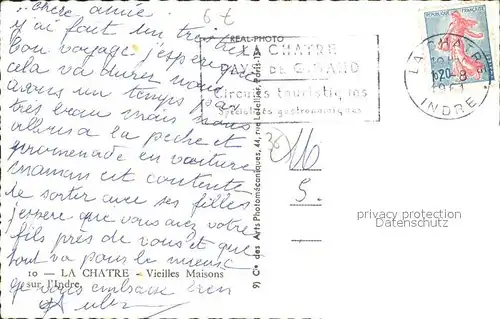 chère amie
67
j'ai fait un très
bon voyage j'espère que
cela va durer nous
avons un temps pas
très beau mais nous
allons a la peche et
promenade en voiture
maman est contente
de sortir avec ses filles
j'espere que vous avez votre
fils près de vous et que
tout va pour le mieux
je vous embrasse bien
REAL-PHOTO
LA CHATRE
PAYS DE G. SAND
Circuits touristiques
Spécialités gastronomiques
REPUBLIQUE FRANÇAISE
LA CHATRE
20-8
INDRE
9) Cie des Arts Photomécaniques, 44, rue Letellier, Paris-15
16
5.
privacy protection
Datenschutz
10 — LA CHATRE - Vieilles Maisons
sur l'Indre